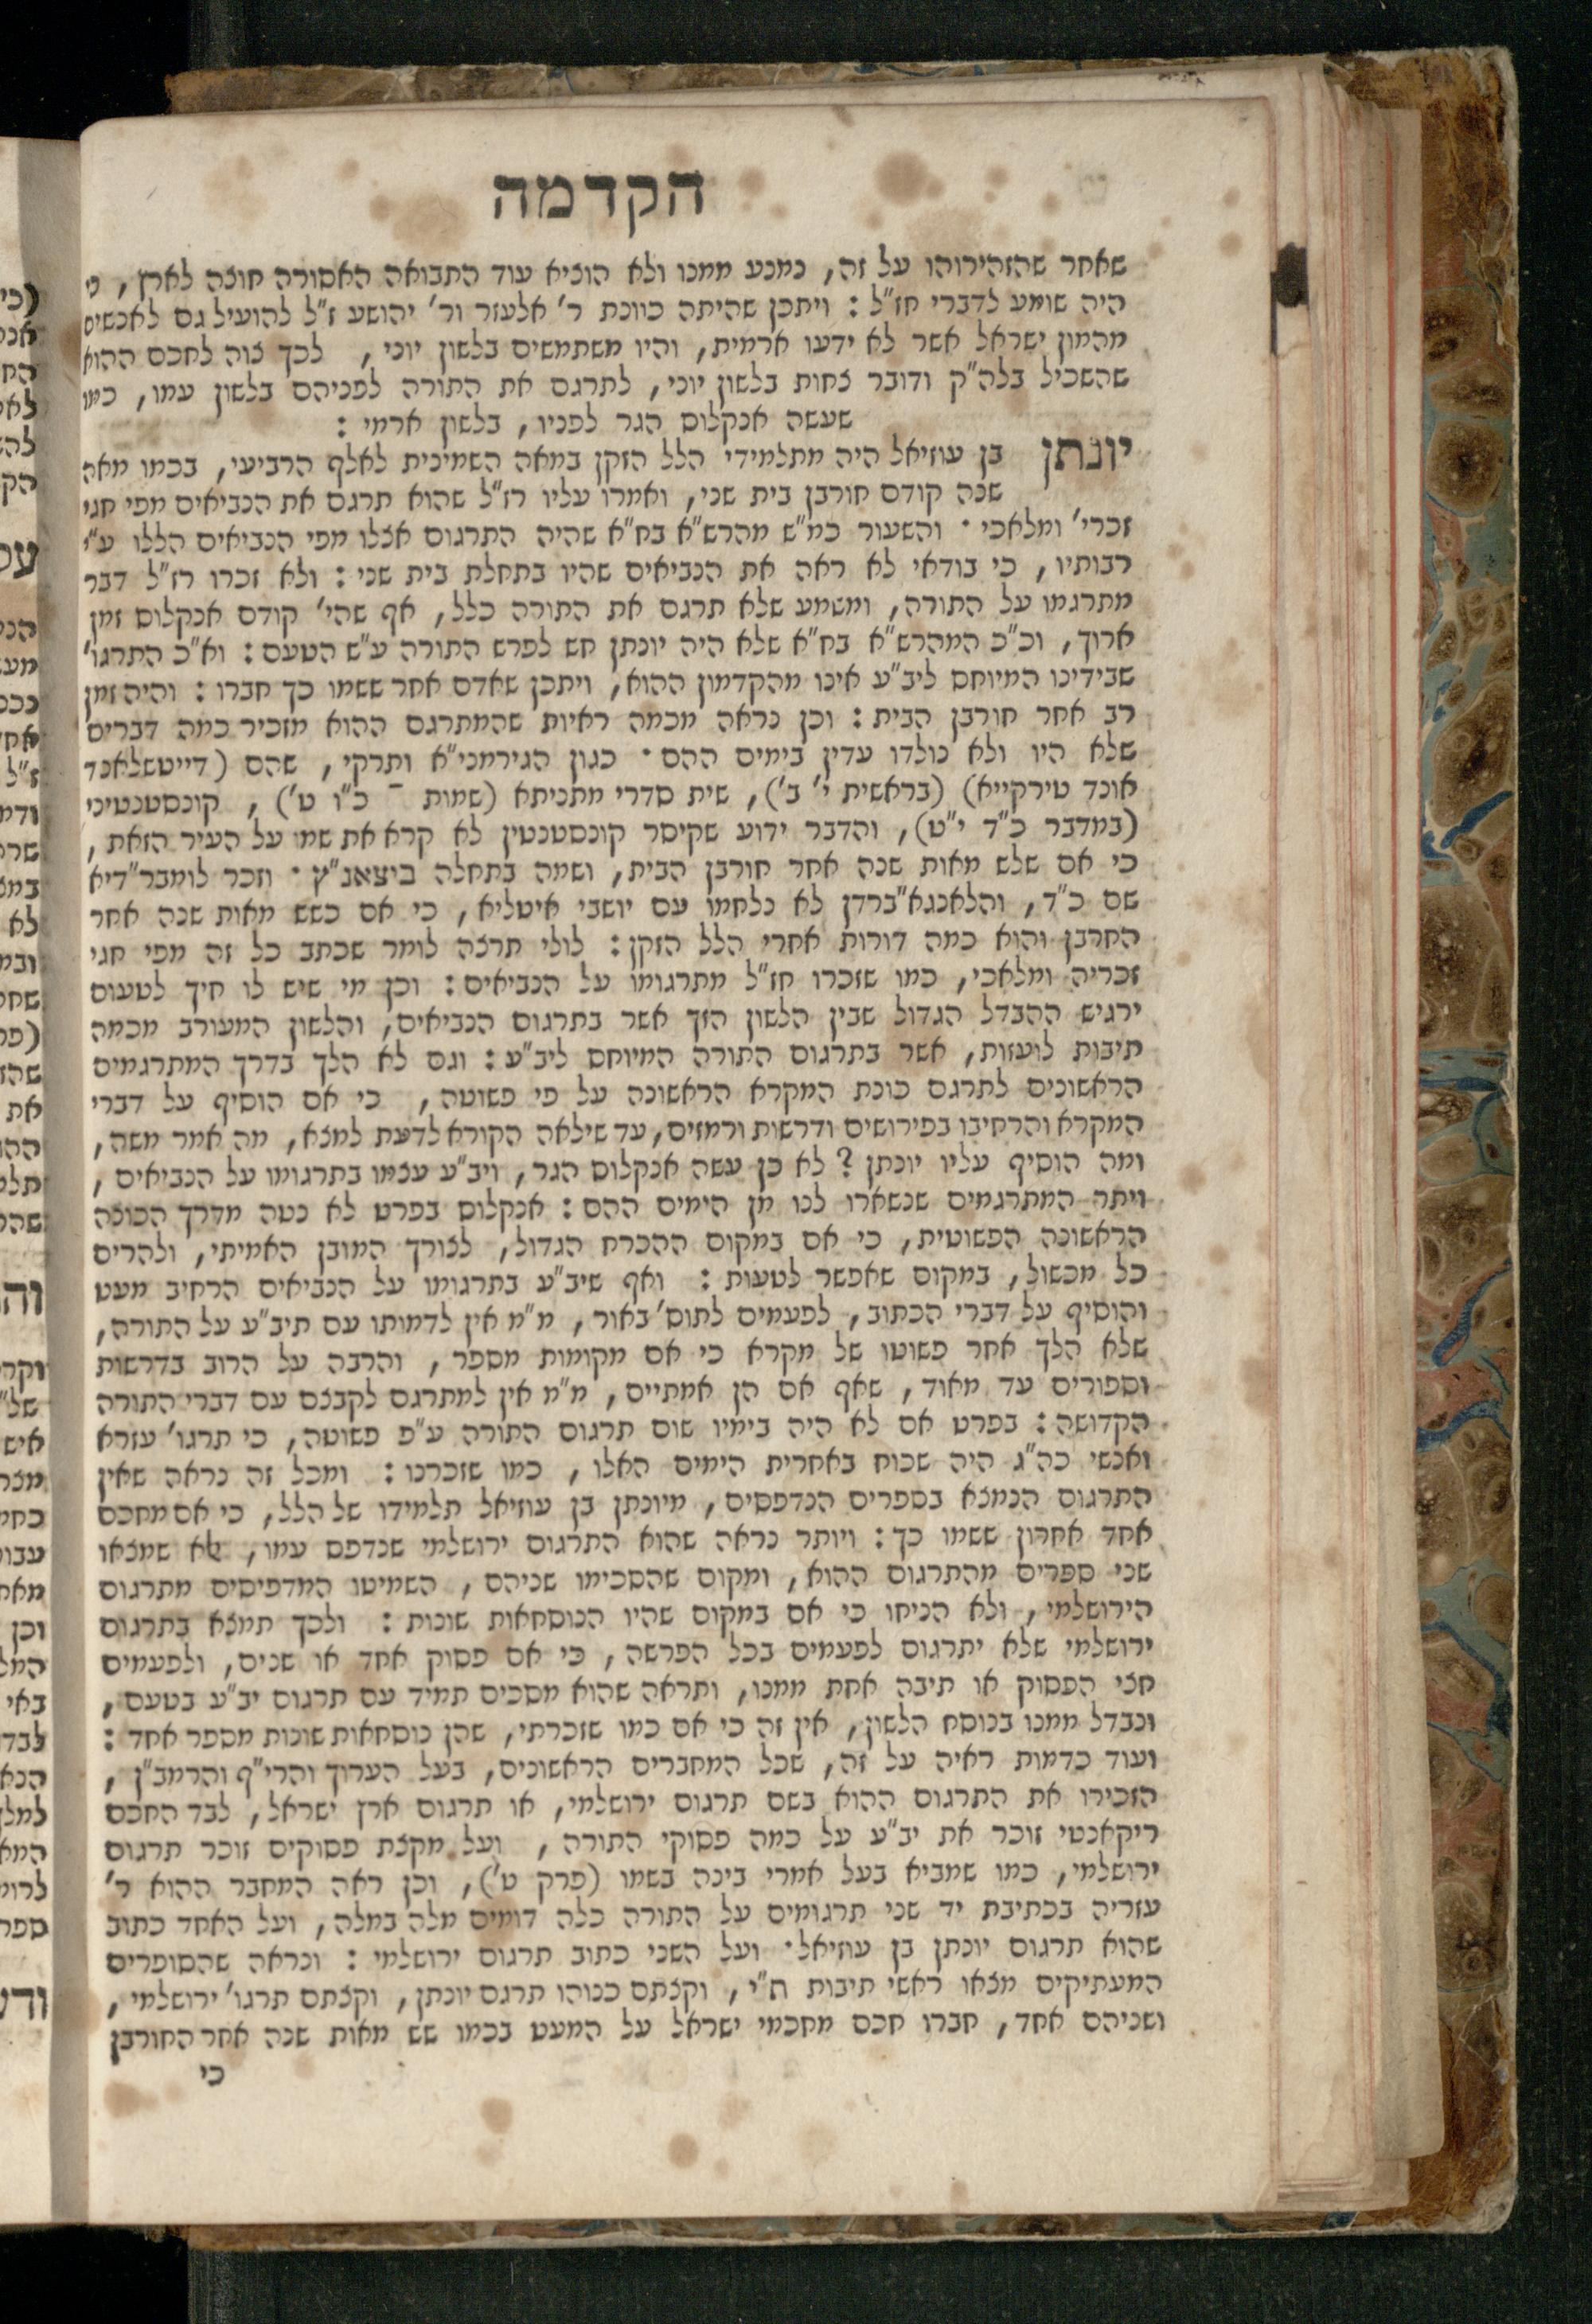 הקדמה
שאחר שהזהירוהו על זה, נמנע ממנו ולא הוציא עוד התבואה האסורה חוצה לארץ, כי
היה שומע לדברי חז"ל : ויתכן שהיתה כוונת ר' אלעזר ור' יהושע ז"ל להועיל גם לאנשים
מהמון ישראל אשר לא ידעו ארמית, והיו משתמשים בלשון יוני, לכך צוה לחכם ההוא
שהשכיל בלה"ק ודובר צחות בלשון יוני, לתרגם את התורה לפניהם בלשון עמו, כמו
שעשה אנקלוס הגר לפניו, בלשון ארמי :
יונתן בן עוזיאל היה מתלמידי הלל הזקן במאה השמינית לאלף הרביעי, בכמו מאה
שנה קודם חורבן בית שני, ואמרו עליו רז"ל שהוא תרגם את הנביאים מפי חגי
זכרי' ומלאכי · והשעור כמ"ש מהרש"א בח"א שהיה התרגום אצלו מפי הנביאים הללו ע"י
רבותיו, כי בודאי לא ראה את הנביאים שהיו בתחלת בית שני : ולא זכרו רז"ל דבר
מתרגמו על התורה, ומשמע שלא תרגם את התורה כלל, אף שהי' קודם אנקלוס זמן
ארוך, וכ"כ המהרש"א בח"א שלא היה יונתן חש לפרש התורה ע"ש הטעם : וא"כ התרגו'
שבידינו המיוחס ליב"ע אינו מהקדמון ההוא, ויתכן שאדם אחר ששמו כך חברו : והיה זמן
רב אחר חורבן הבית : וכן נראה מכמה ראיות שהמתרגם ההוא מזכיר כמה דברים
שלא היו ולא נולדו עדין בימים ההם · כגון הגירמני"א ותרקי, שהם (דייטשלאנד
אונד טירקייא) (בראשית י' ב'), שית סדרי מתניתא (שמות ־ כ"ו ט'), קונסטנטיני
(במדבר כ"ד י"ט), והדבר ידוע שקיסר קונסטנטין לא קרא את שמו על העיר הזאת,
כי אם שלש מאות שנה אחר חורבן הבית, ושמה בתחלה ביצאנ"ץ · וזכר לומבר"דיא
שם כ"ד, והלאנגא"ברדן לא נלחמו עם יושבי איטליא, כי אם כשש מאות שנה אחר
החרבן והוא כמה דורות אחרי הלל הזקן : לולי תרצה לומר שכתב כל זה מפי חגי
זכריה ומלאכי, כמו שזכרו חז"ל מתרגומו על הנביאים : וכן מי שיש לו חיך לטעום
ירגיש ההבדל הגדול שבין הלשון הזך אשר בתרגום הנביאים, והלשון המעורב מכמה
תיבות לועזות, אשר בתרגום התורה המיוחס ליב"ע : וגם לא הלך בדרך המתרגמים
הראשונים לתרגם כונת המקרא הראשונה על פי פשוטה, כי אם הוסיף על דברי
המקרא והרחיבו בפירושים ודרשות ורמזים, עד שילאה הקורא לדעת למצא, מה אמר משה,
ומה הוסיף עליו יונתן ? לא כן עשה אנקלוס הגר, ויב"ע עצמו בתרגומו על הנביאים,
ויתר המתרגמים שנשארו לנו מן הימים ההם : אנקלוס בפרט לא נטה מדרך הכונה
הראשונה הפשוטית, כי אם במקום ההכרח הגדול, לצורך המובן האמיתי, ולהרים
כל מכשול, במקום שאפשר לטעות : ואף שיב"ע בתרגומו על הנביאים הרחיב מעט
והוסיף על דברי הכתוב, לפעמים לתוס' באור, מ"מ אין לדמותו עם תיב"ע על התורה,
שלא הלך אחר פשוטו של מקרא כי אם מקומות מספר, והרבה על הרוב בדרשות
וספורים עד מאוד, שאף אם הן אמתיים, מ"מ אין למתרגם לקבצם עם דברי התורה
הקדושה : בפרט אם לא היה בימיו שום תרגום התורה ע"פ פשוטה, כי תרגו' עזרא
ואנשי כה"ג היה שכוח באחרית הימים האלו, כמו שזכרנו : ומכל זה נראה שאין
התרגום הנמצא בספרים הנדפסים, מיונתן בן עוזיאל תלמידו של הלל, כי אם מחכם
אחד אחרון ששמו כך : ויותר נראה שהוא התרגום ירושלמי שנדפס עמו, שמצאו
שני ספרים מהתרגום ההוא, ומקום שהסכימו שניהם, השמיטו המדפיסים מתרגום
הירושלמי, ולא הניחו כי אם במקום שהיו הנוסחאות שונות : ולכך תמצא בתרגום
ירושלמי שלא יתרגום לפעמים בכל הפרשה, כי אם פסוק אחד או שנים, ולפעמים
חצי הפסוק או תיבה אחת ממנו, ותראה שהוא מסכים תמיד עם תרגום יב"ע בטעם,
ונבדל ממנו בנוסח הלשון, אין זה כי אם כמו שזכרתי, שהן נוסחאות שונות מספר אחד :
ועוד כדמות ראיה על זה, שכל המחברים הראשונים, בעל הערוך והרי"ף והרמב"ן,
הזכירו את התרגום ההוא בשם תרגום ירושלמי, או תרגום ארץ ישראל, לבד החכם
ריקאנטי זוכר את יב"ע על כמה פסוקי התורה, ועל מקצת פסוקים זוכר תרגום
ירושלמי, כמו שמביא בעל אמרי בינה בשמו (פרק ט'), וכן ראה המחבר ההוא ר'
עזריה בכתיבת יד שני תרגומים על התורה כלה דומים מלה במלה, ועל האחד כתוב
שהוא תרגום יונתן בן עוזיאל · ועל השני כתוב תרגום ירושלמי : ונראה שהסופרים
המעתיקים מצאו ראשי תיבות ת"י, וקצתם כנוהו תרגם יונתן, וקצתם תרגו' ירושלמי,
ושניהם אחד, חברו חכם מחכמי ישראל על המעט בכמו שש מאות שנה אחר החורבן
כי